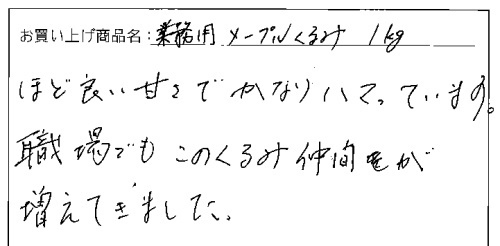 お買い上げ商品名：業務用 メープルくるみ 1kg
ほど良い甘さでかなりハマっています。
職場でもこのくるみ仲間が
増えてきました。